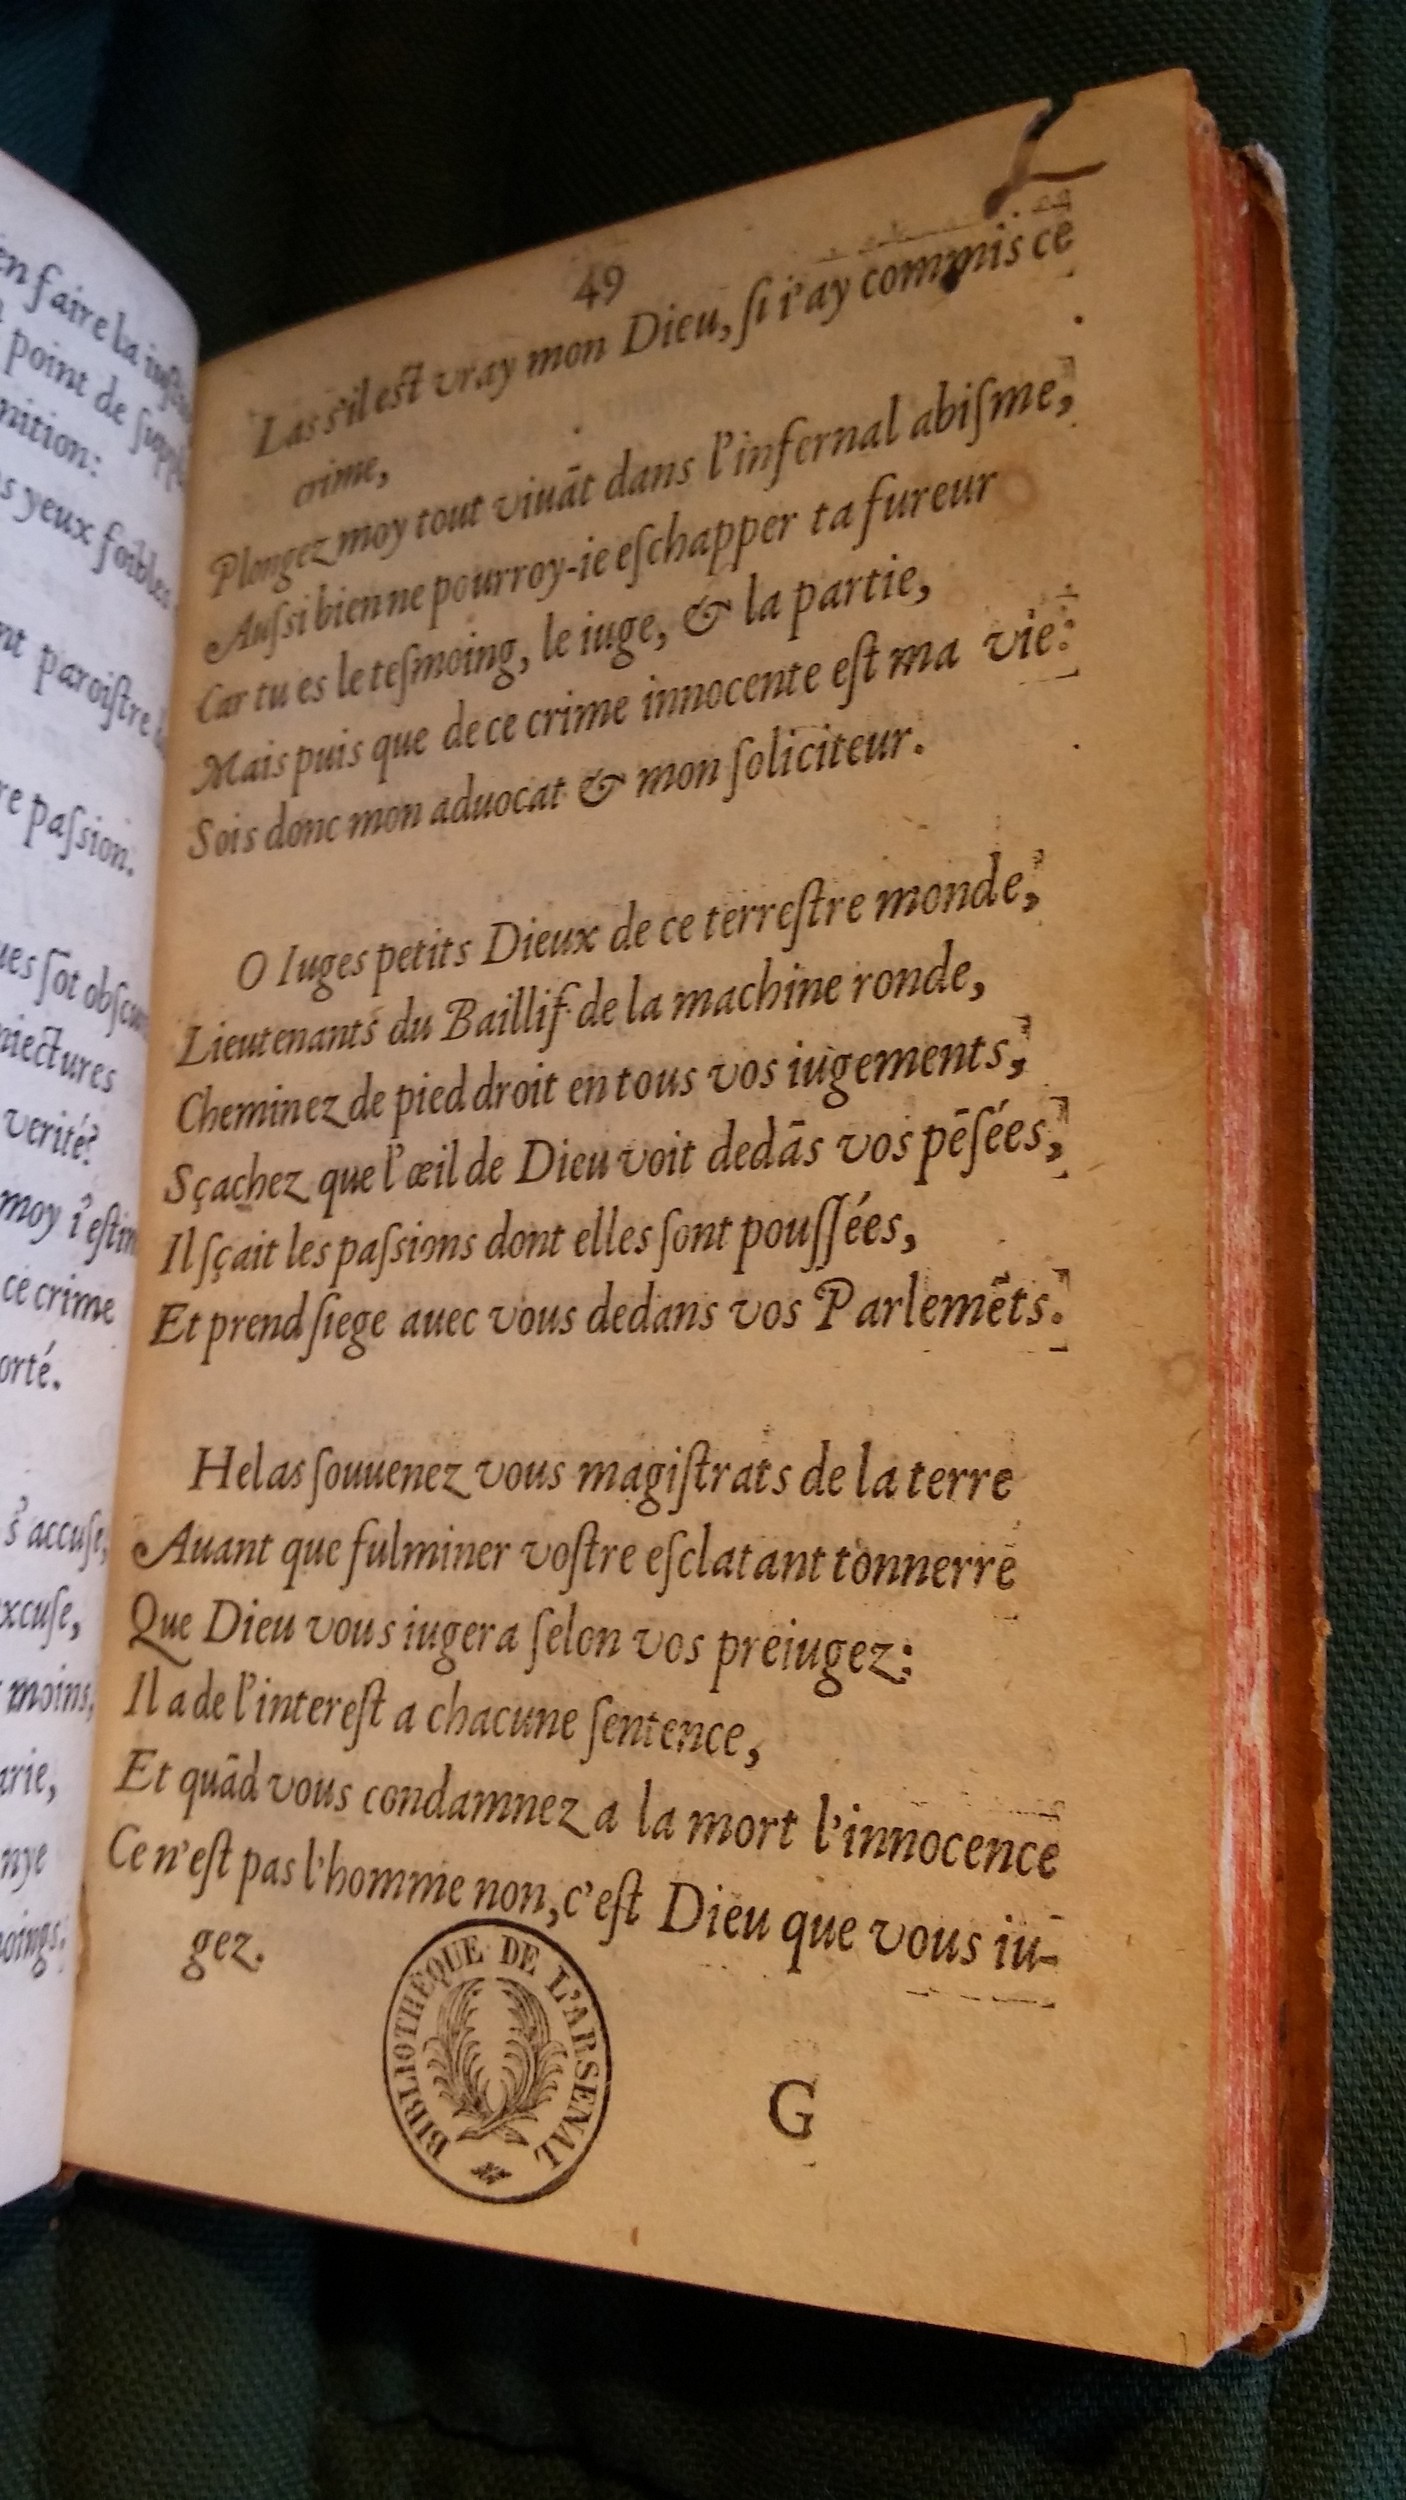 en faire la
point de
nition:
s yeux foibles
nt paroiſtre
re paſsion.
ues ſot obſcu
niectures
verité?
moy i'eſtim
ce crime
orté.
s'accuſe,
xcuſe,
moins,
arie,
nye
oings:
49
Las s'il eſt vray mon Dieu, ſi i'ay commis ce
crime,
Plongez moy tout viuāt dans l'infernal abiſme,
Auſsi bien ne pourroy-ie eſchapper ta fureur
Car tu es le teſmoing, le iuge, & la partie,
Mais puis que de ce crime innocente eſt ma vie:
Sois donc mon aduocat & mon ſoliciteur.
O Iuges petits Dieux de ce terreſtre monde,
Lieutenants du Baillif de la machine ronde,
Cheminez de pied droit en tous vos iugements,
Sçachez que l'œil de Dieu voit dedās vos pēſées,
Il ſçait les paſsions dont elles ſont pouſſées,
Et prend ſiege auec vous dedans vos Parlemēts.
Helas ſouuenez vous magiſtrats de la terre
Auant que fulminer voſtre eſclatant tonnerre
Que Dieu vous iugera ſelon vos preiugez:
Il a de l'intereſt a chacune ſentence,
Et quād vous condamnez a la mort l'innocence
Ce n'eſt pas l'homme non, c'eſt Dieu que vous iu-
gez.
BIBLIOTHÈQUE DE L'ARSENAL
G